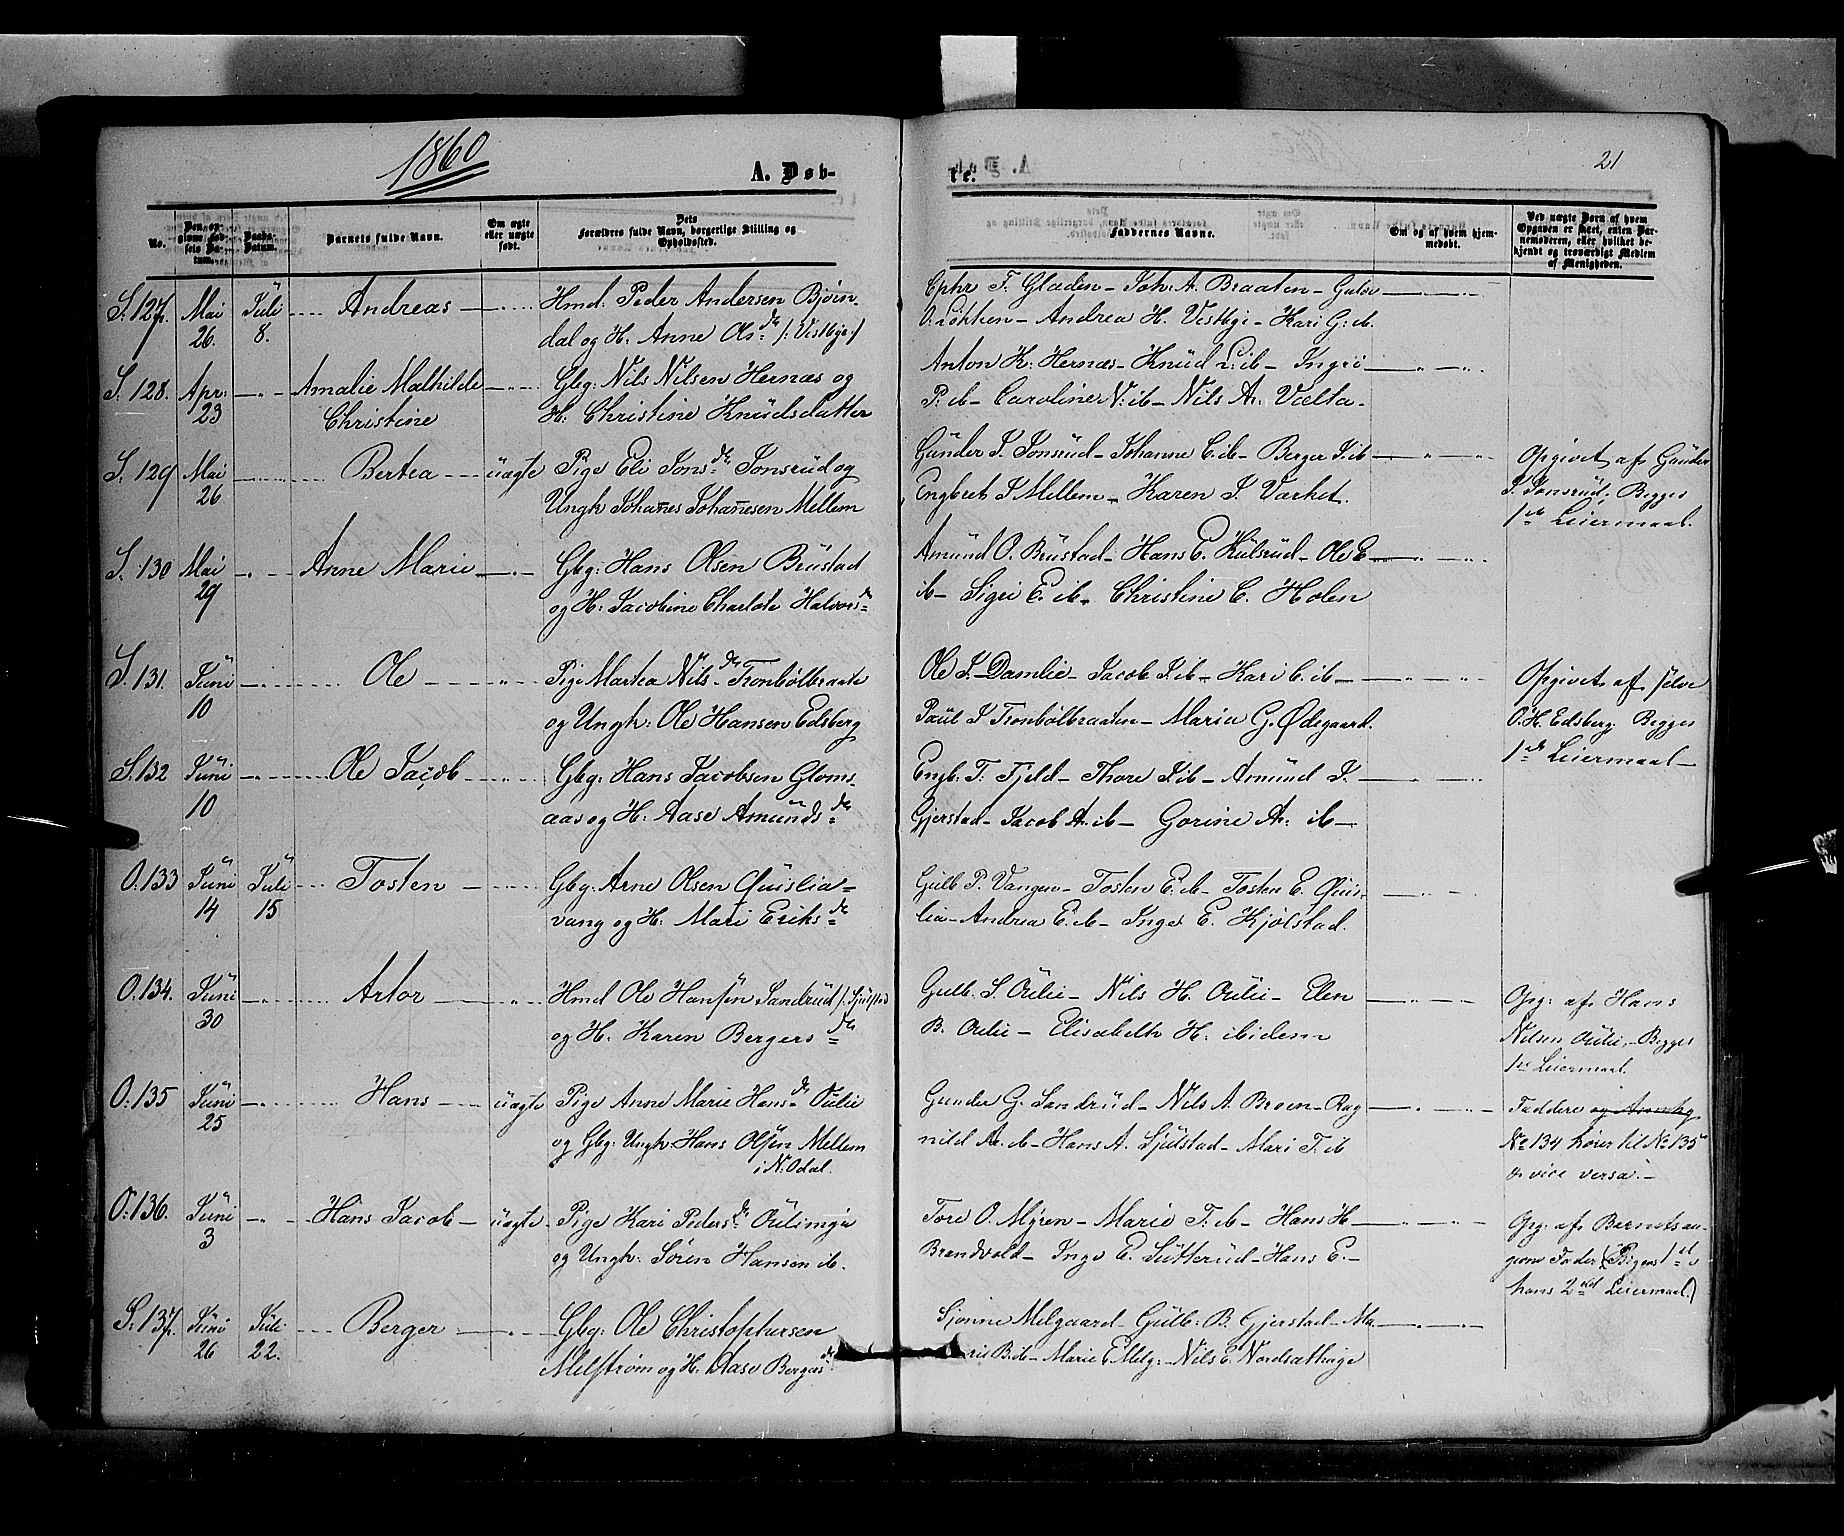 1860
A. Døb-
te.
21
No.
Den op-
givne Fød-
sels Da-
tum.
Daabs-
Datum.
Barnets fulde Navn.
Om ægte
eller uægte
født.
Dets
Forældres fulde Navn, borgerlige Stilling og
Opholdssted.
Faddernes Navne.
Om og af hvem hjem-
medøbt.
Ved uægte Børn af hvem
Opgaven er skeet, enten Bar-
nemoderen, eller hvilket be-
kjendt og troværdigt Medlem
af Menigheden.
S. 127. Mai Juli Andreas Hmd: Peder Andersen Bjørn- Ephr T. Gladen - Joh: A. Braaten - Gulov
26. 8. dal og H: Anne Ols dr /: Vestbye :/ O. Løkken - Andrea H. Vestbye - Kari G: ib.
S. 128. Apr: Amalie Mathilde Gbg: Nils Nilsen Hernæs og Anton K: Hernæs - Knud L: ib - Ingri
23 Christine H: Christine Knudsdatter P: ib - Caroline N: ib - Nils A. Vælta -
S. 129 Mai Bertea uægte Pige Eli Jons dr Jonsrud og Gunder J. Jonsrud - Johanne C. ib - Berger J. ib Opgivet af Gunder
26 Ungk Johannes Johannesen Mellem Engbret J Mellem - Karen J. Varhet. J. Jonsrud; Begges
1ste Leiermaal.
S. 130 Mai Anne Marie Gbg: Hans Olsen Brustad Amund O. Brustad - Hans E. Hulsrud - Ole E
29 og H: Jacobine Charlote Halvors dr ib - Sigri E. ib - Christine C. Holen
S. 131. Juni Ole Pige Martea Nils dr Tronbølbraate Ole J. Damlie - Jacob J. ib - Kari C. ib Opgivet af selve
10 og Ungk: Ole Hansen Edsberg Paul J Tronbølbraaten - Maria G. Ødegaard. O. H. Edsberg Begges
1ste Leiermaal
S. 132 Juni Ole Jacob Gbg: Hans Jacobsen Gloms- Engb: T. Fjeld - Thore J. ib - Amund J.
10 aas og H: Aase Amunds dr Gjerstad - Jacob A. ib - Gorine A. ib -
O. 133 Juni Juli Tosten Gbg: Arne Olsen Quislia- Gulb P. Vangen - Tosten E. ib - Tosten E. Quis-
14 15 vang og H: Mari Eriks dr lia - Andrea E. ib - Inge E. Kjølstad.
O. 134. Juni Artor Hmd Ole Hansen Sandrud /: Sjulstad Gulb. S. Oulie - Nils H. Oulie - Elen Opg: af Hans
30 og H. Karen Bergers dr B. Oulie - Elisabeth H. ibidem Nilsen Oulie, - Begges
1ste Leiermaal.
O: 135 Juni Hans uægte Pige Anne Marie Hans dr Oulie Gunder G. Sandrud - Nils A. Broen - Rag Faddere
25 og Gbg: Ungk: Hans Olsen Mellem nild A. ib - Hans A. Sjulstad - Mari T. ib No 134 hører til No 135
i N. Odal. & vice versa. -
O: 136. Juni Hans Jacob uægte Pige Kari Peders dr Oulimyr Tore O. Myren - Marie T. ib - Hans H Opg: af Barnets an-
3 og Ungk: Søren Hansen ib. Brandvold - Inge E. Sutterud - Hans E. - givne Fader (Pigens 1ste
hans 2det Leiermaal.)
S. 137. Juni Juli Berger Gbg: Ole Christophersen Sjønne Melgaard - Gulb: B. Gjerstad - Ma
26 22. Melstrøm og H. Aase Bergers dr rie B. ib - Marie E Melg: - Nils E. Nordsæthage